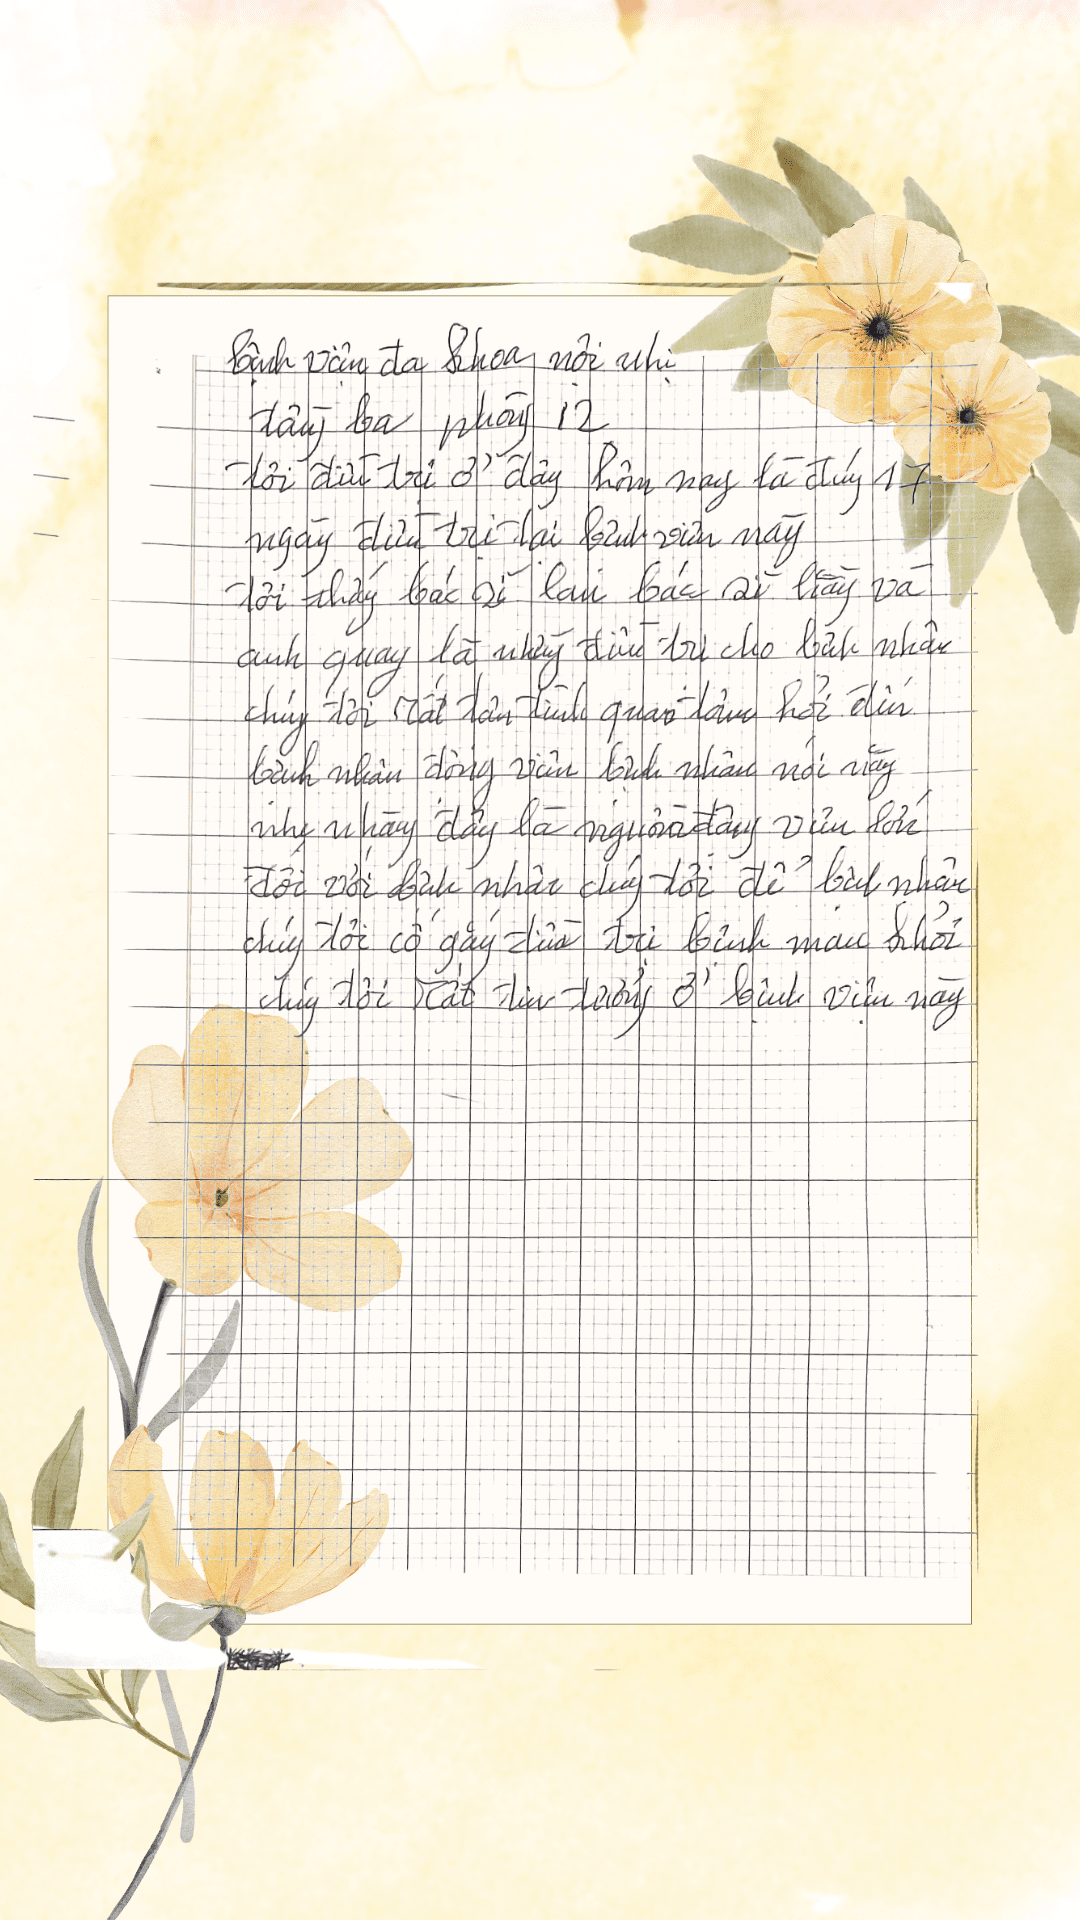 bệnh viện đa khoa nội nhị
tầng ba phòng 12
tôi điều trị ở đây hôm nay là đúy 17
ngày điều trị tại bệnh viện này
tôi thấy bác sĩ lan bác sĩ và
anh quay là những điều trị cho bệnh nhân
chúng tôi rất tân tình quan tâm hỏi đến
bệnh nhân động viên bệnh nhân nói năng
nhẹ nhàng đây là nguồn động viên lớn
đối với bệnh nhân chúng tôi để bệnh nhân
chúng tôi cố gắng điều trị bệnh mau khỏi
chúng tôi rất tin tưởng ở bệnh viện này